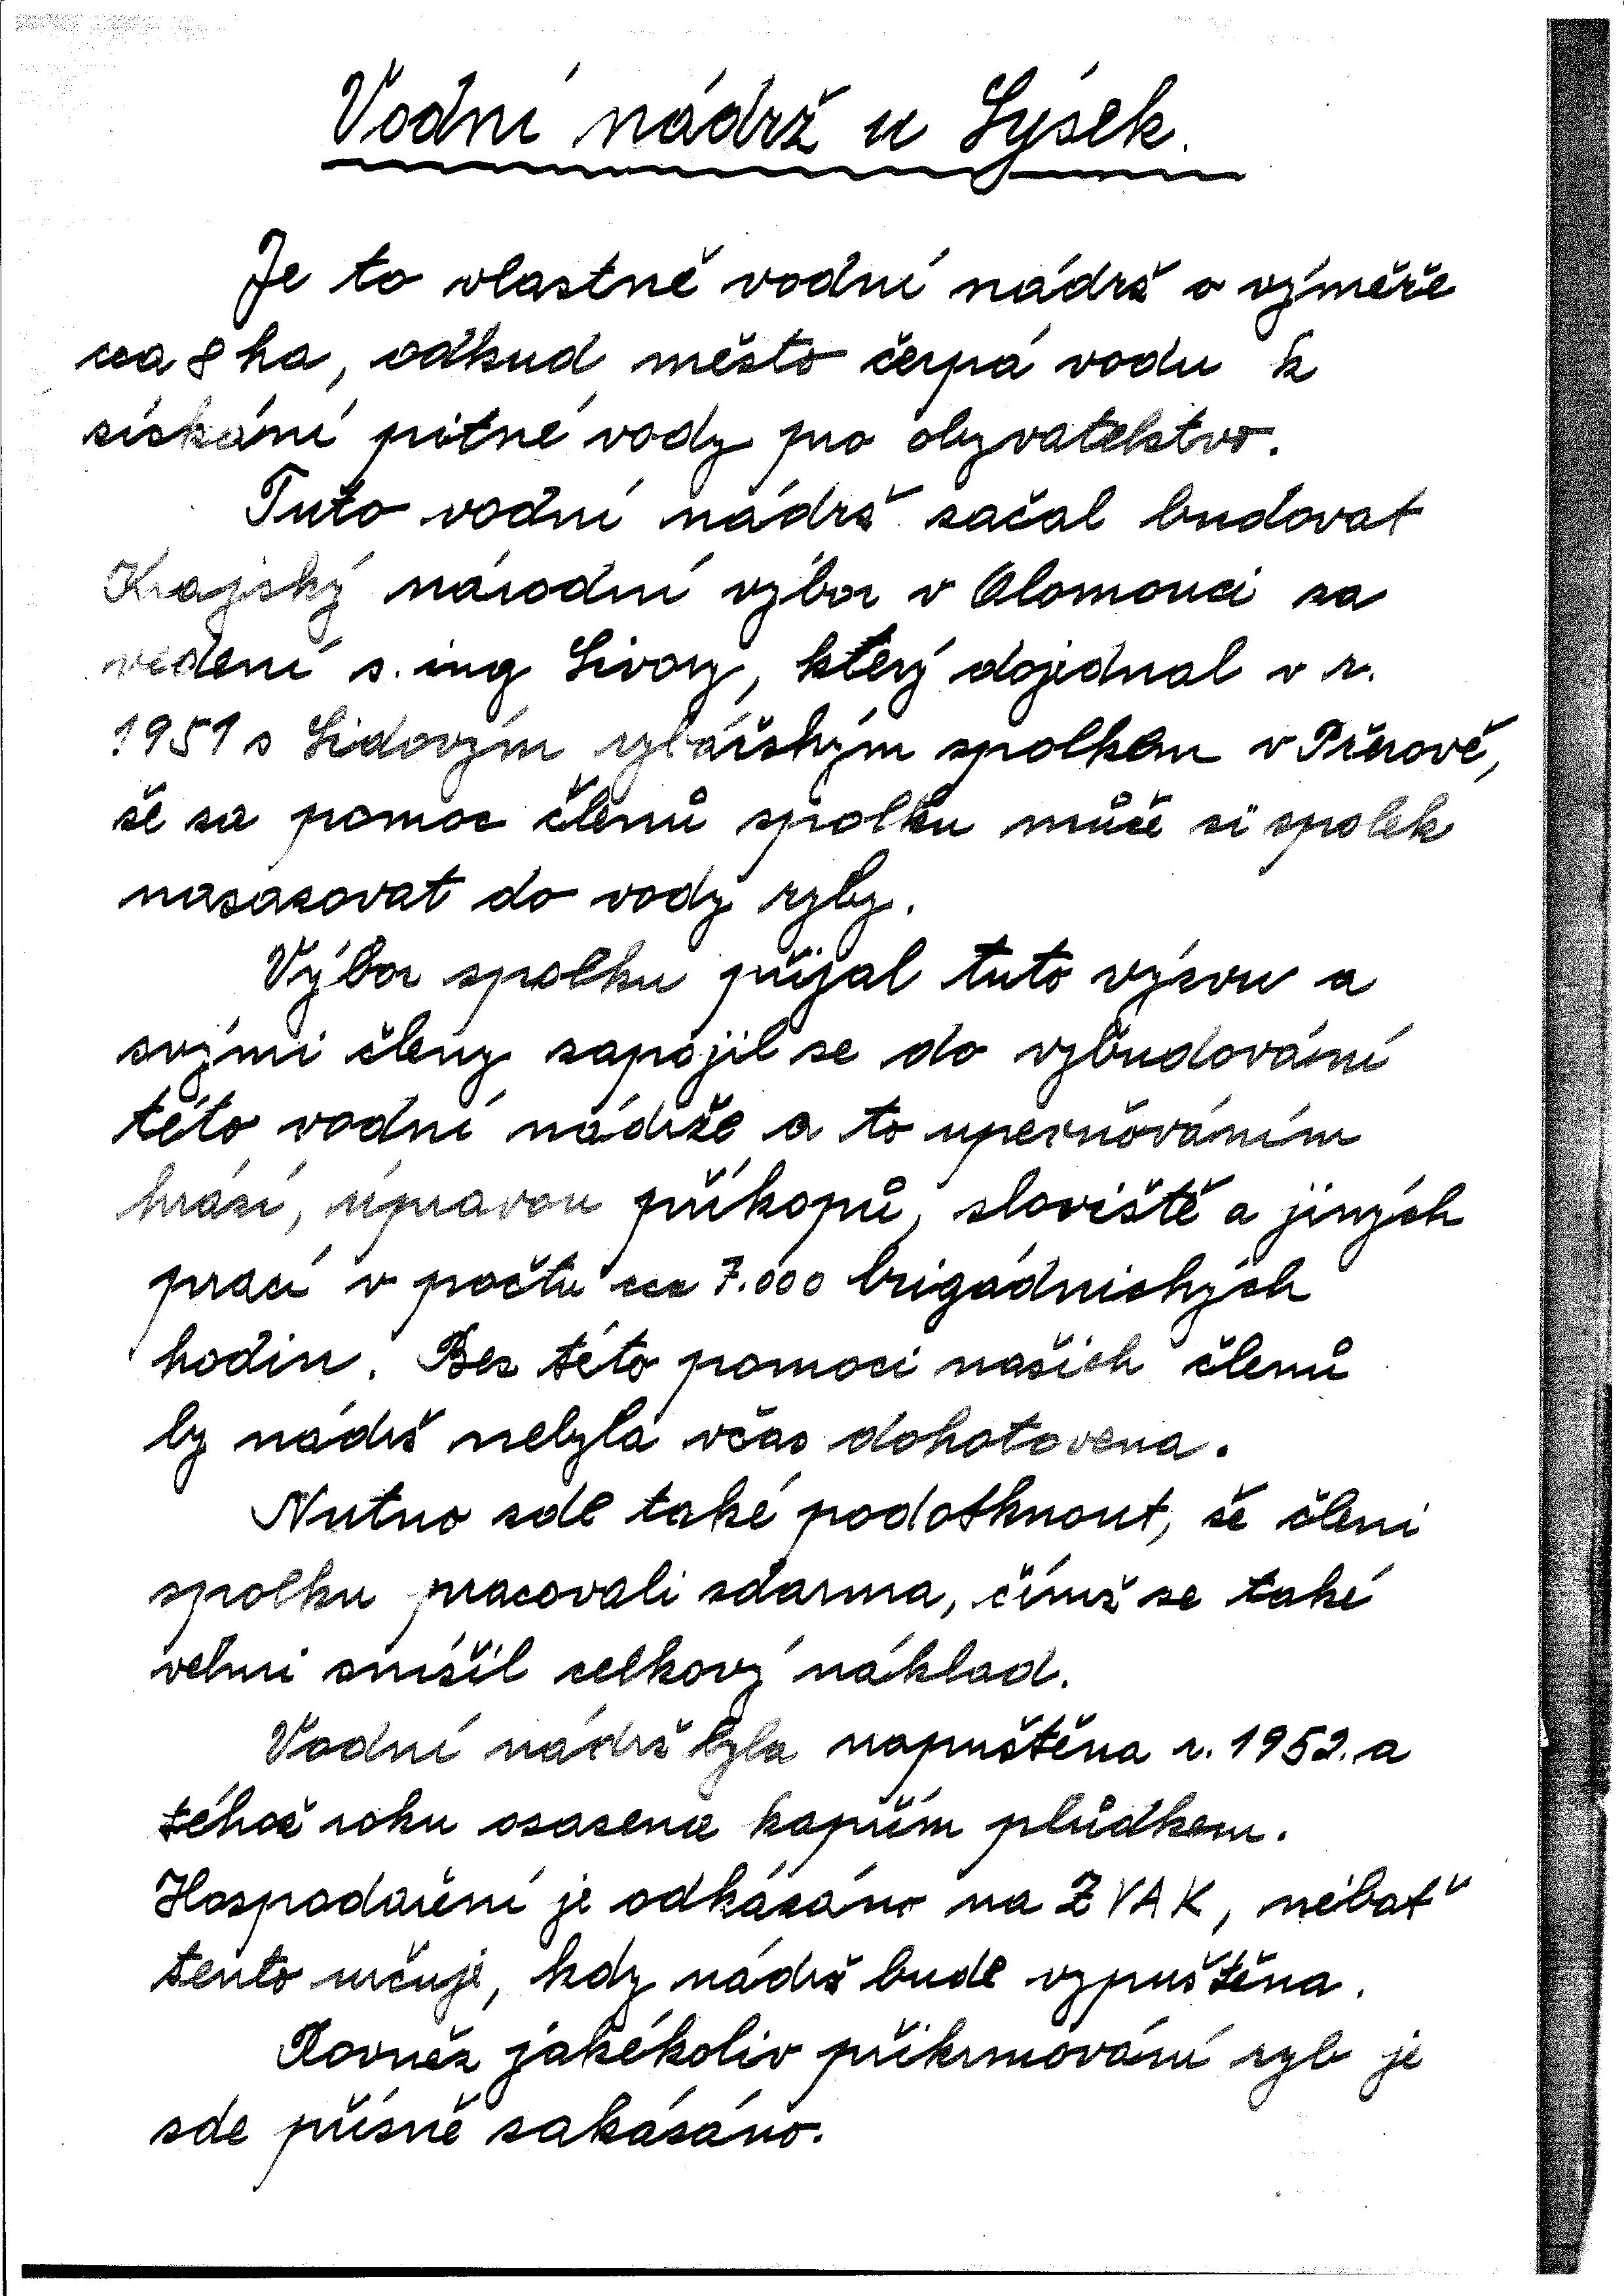 Vodní nádrž u Lýsek.
Je to vlastně vodní nádrž o výměře
cca 8 ha, odkud město čerpá vodu k
získání pitné vody pro obyvatelstvo.
Tuto vodní nádrž začal budovat
Krajský národní výbor v Olomouci za
vedení s. ing Sivory, který dojednal v r.
1951 s Lidovým rybářským spolkem v Přerově,
že za pomoc členů spolku může si spolek
nasazovat do vody ryby.
Výbor spolku přijal tuto výzvu a
svými členy zapojil se do vybudování
této vodní nádrže a to upevňováním
hrází, úpravou příkopů, sloviště a jiných
prací v počtu cca 7.000 brigádnických
hodin. Bez této pomoci našich členů
by nádrž nebyla včas dohotovena.
Nutno zde také podotknout, že členi
spolku pracovali zdarma, čímž se také
velmi snížil celkový náklad.
Vodní nádrž byla napuštěna r. 1952. a
téhož roku osazena kapřím plůdkem.
Hospodaření je odkázáno na ZVAK, neboť
tento určuje, kdy nádrž bude vypuštěna.
Rovněž jakékoliv přikrmování ryb je
zde přísně zakázáno.